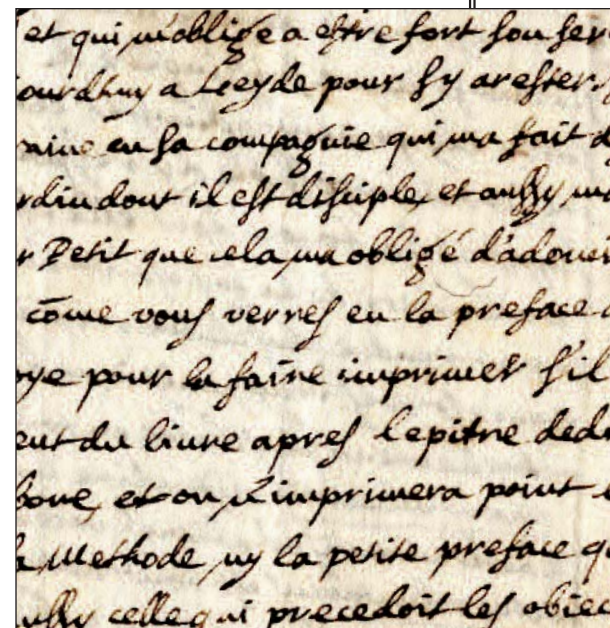 et qui m'oblige a estre fort son ser
ourdhuy a Leyde pour sy arester
aine en sa compagnie qui ma fait
rdin dont il est disciple, et aussy
r Petit que cela ma obligé d'adouci
cōme vous verres en la preface
oye pour la faire imprimer s'il
ent du liure apres lepitre ded
bone, et on n'imprimera point
a Methode ny la petite preface qu
ussy celle qui precedoit les obiec